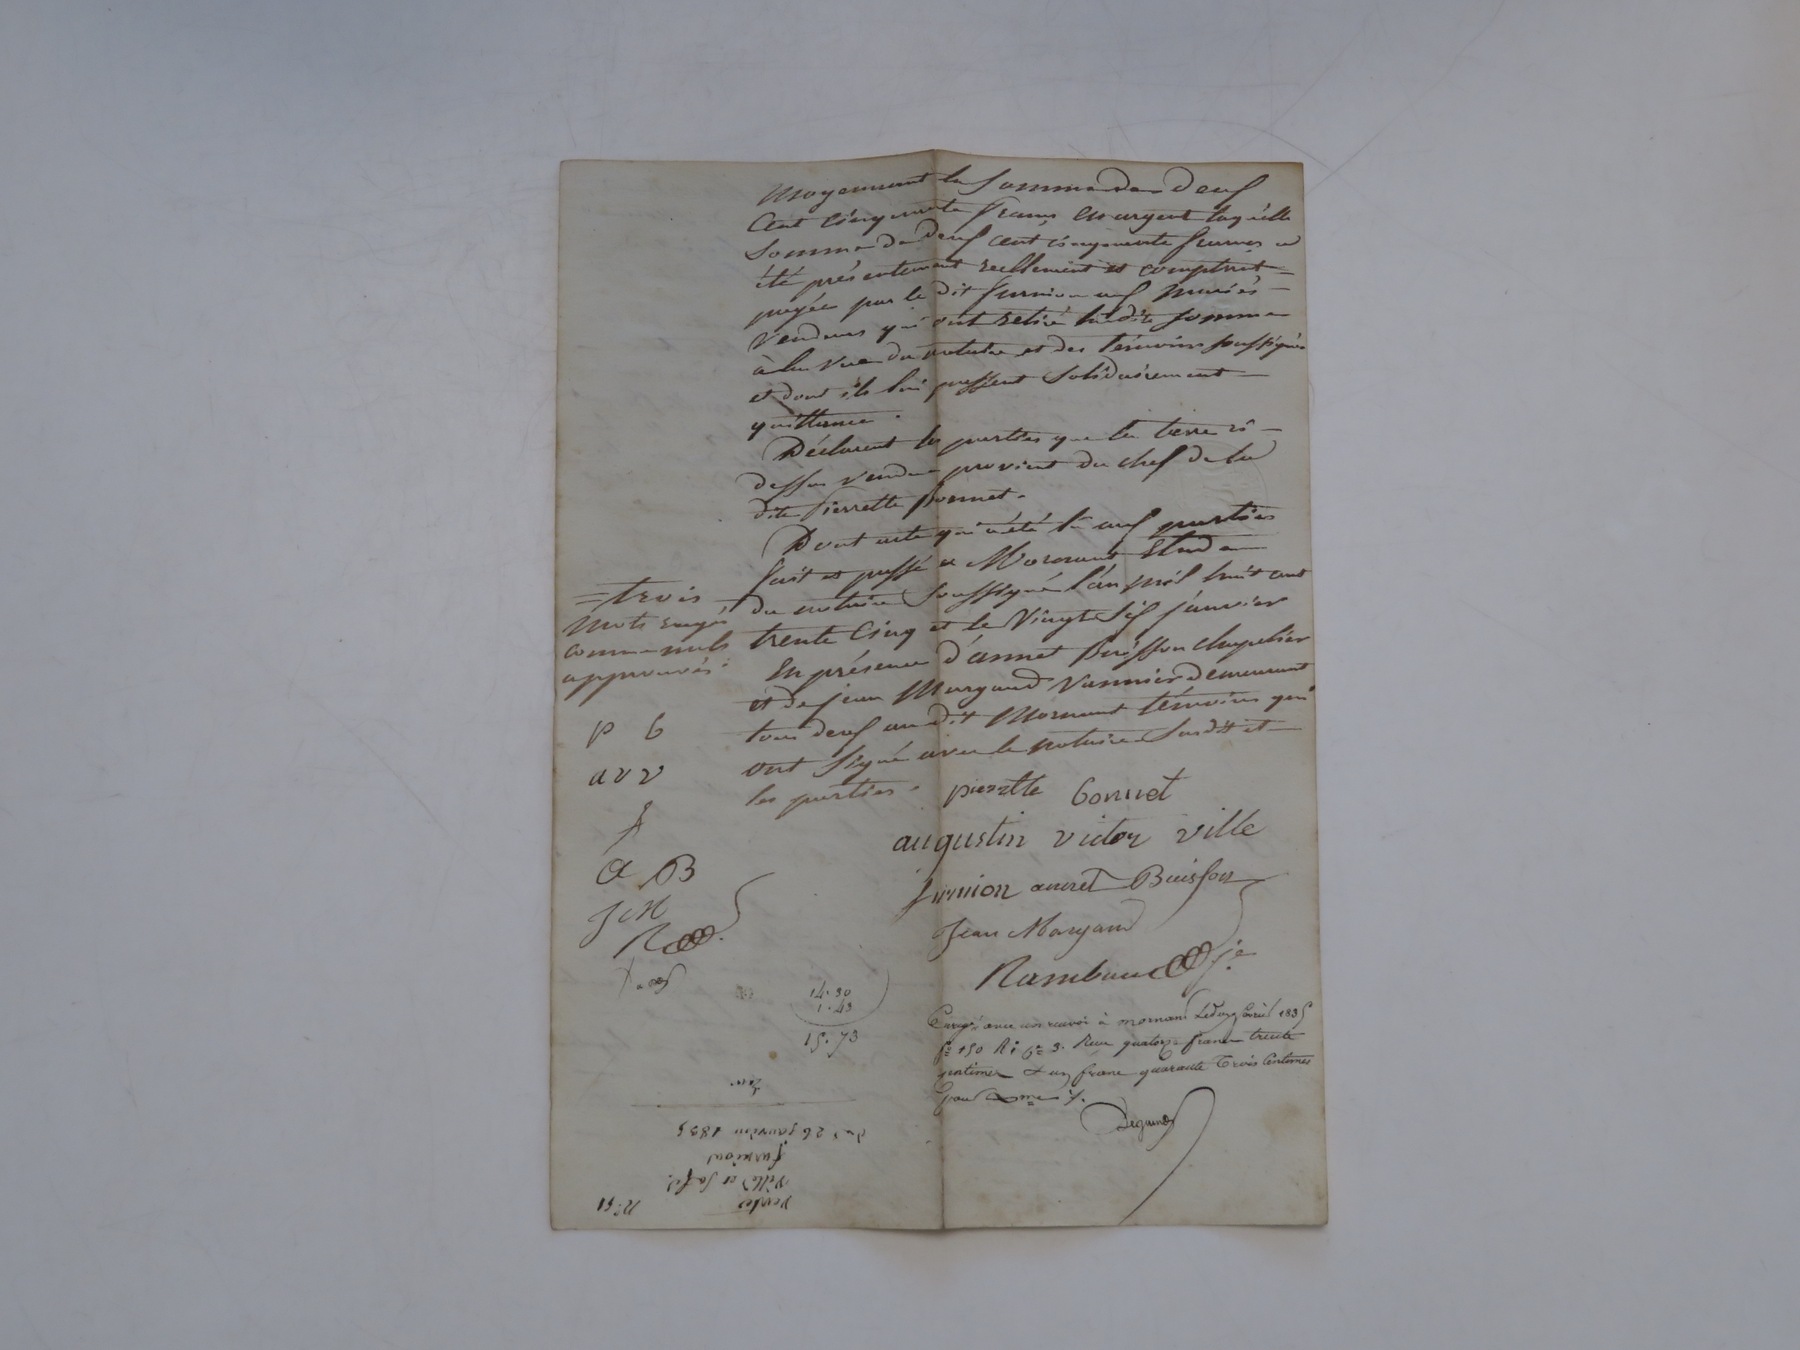 Moyennant la somme de deuf
Cent Cinquante francs en argent laquelle
Somme de deuf cent cinquante francs a
été présentement reellement et comptant
payée par le dit furnion auf Mariés
Vendeurs qui ont retiré la dite somme
à la vue du notaire et des témoins soussignés
et dont ils lui passent Solidairement
quittance.
Déclarent les parties que la terre ci-
dessus vendue provient du chef de la
dite Pierrette Bonnet.
Dont acte qui a été lu auf parties
fait et passé a Mornant Etude
du notaire soussigné l'an mil huit cent
trente Cinq et le Vingt Sif janvier
En présence d'annet Buisson chapelier
et de jean Margand Vannier demeurant
tous deuf au dit Mornant témoins qui
ont signé avec le notaire Susdit et
les parties.
= trois
mots rayés
comme nuls
approuvés:
p b
a v v
f
a B
J M
R
pierette bonnet
augustin victor ville
furnion annet Buisson
Jean Margand
Rambaud
14.30
1.43
15.73
Enregé avec un renvoi à mornant Le février 1835
fo 150 Ro Ce 3. Reçu quatorze francs trente
centimes & un franc quarante Trois Centimes
pour
Du 26 janvier 1835
furnion
Ville et Sa fe.
Vente
No 51